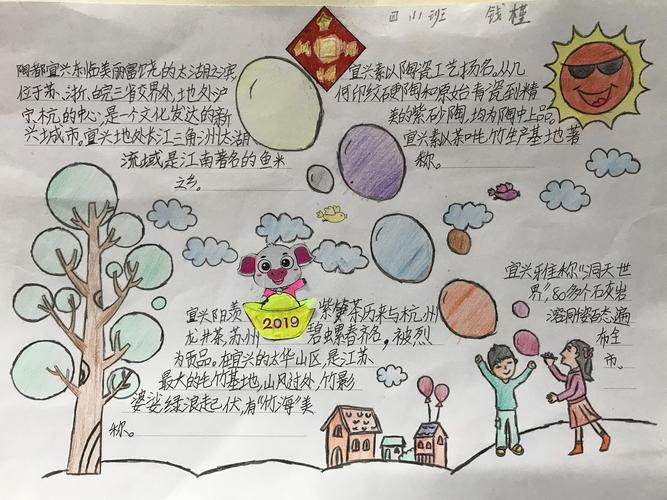 四川班 钱槿
陶都宜兴东临美丽富饶的太湖之滨,
位于苏、浙、皖三省交界处,地处沪
宁杭的中心,是一个文化发达的新
兴城市。宜兴地处长江三角洲太湖
流域,是江南著名的鱼米
之乡。
宜兴素以陶瓷工艺扬名。从几
何印纹硬陶和原始青瓷到精
美的紫砂陶,均为陶中上品。
宜兴素以茶叶毛竹生产基地著
称。
2019
宜兴阳羡紫笋茶历来与杭州
龙井茶,苏州碧虫累春齐名,被列
为贡品。在宜兴的太华山区,是江苏
最大的毛竹基地,山风过处,竹影
婆娑,绿浪起伏,有“竹海”美
称。
宜兴雅称“洞天世
界”80多个石灰岩
溶洞姿态
布全
市。